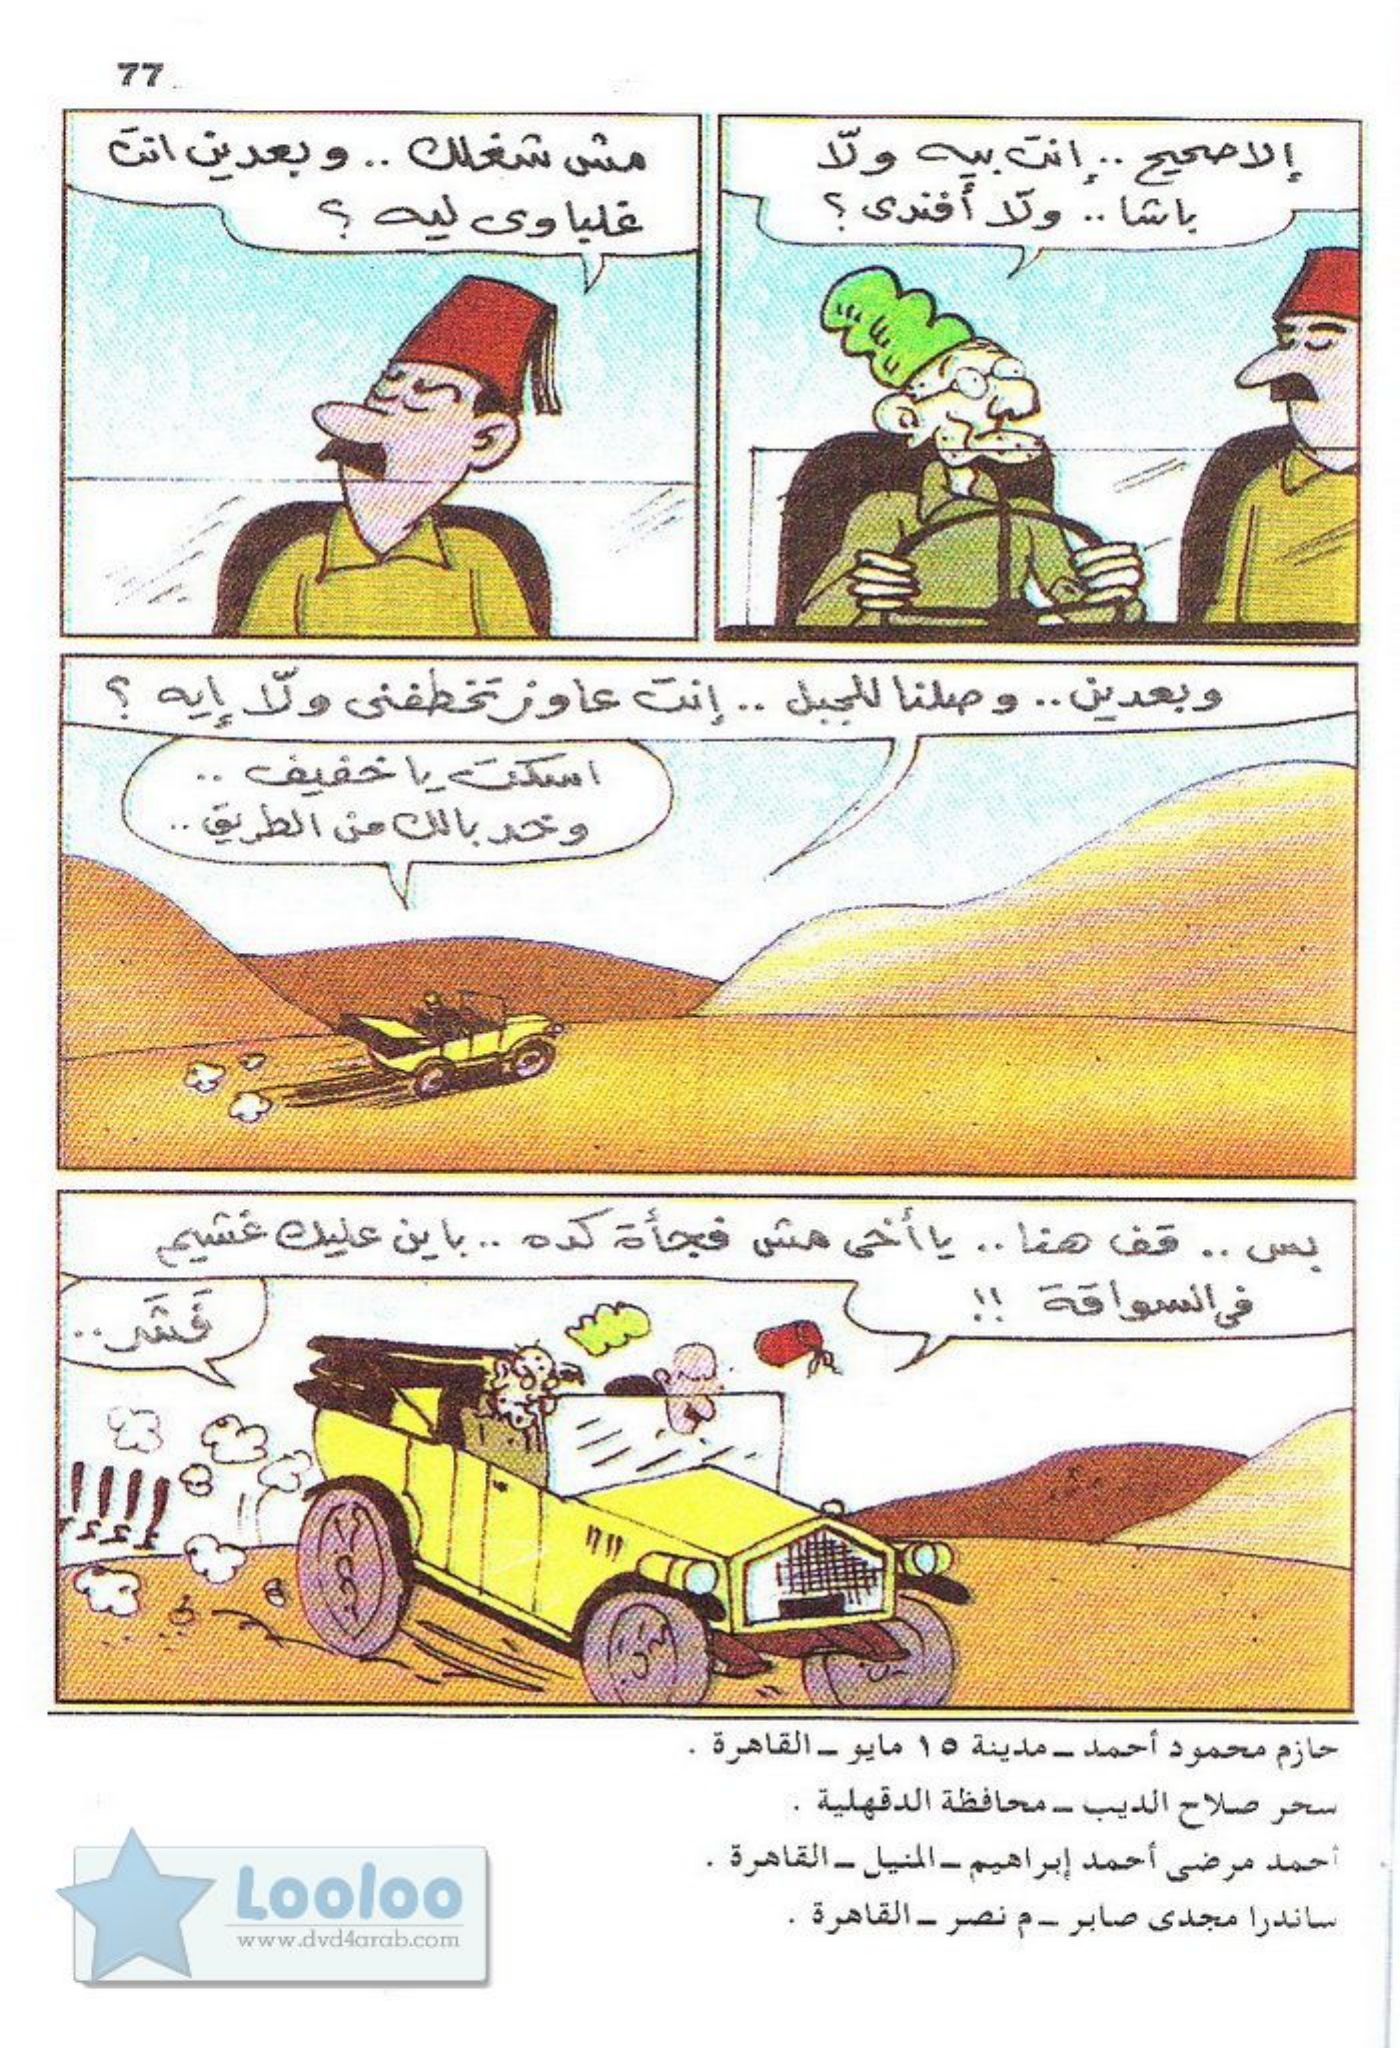 77
إلا صحيح .. إنت بيه ولّا
باشا .. ولّا أفندى ؟
مش شغلك .. وبعدين انت
غلباوى ليه ؟
وبعدين .. وصلنا للجبل .. إنت عاوز تخطفنى ولّا إيه ؟
اسكت يا خفيف ..
وخد بالك من الطريق ..
بس .. قف هنا .. يا أخى مش فجأة كده .. باين عليك غشيم
فى السواقة !!
فَشَر ..
إإإإ
حازم محمود أحمد ــ مدينة ١٥ مايو ــ القاهرة .
سحر صلاح الديب ــ محافظة الدقهلية .
أحمد مرضى أحمد إبراهيم ــ المنيل ــ القاهرة .
ساندرا مجدى صابر ــ م نصر ــ القاهرة .
Looloo
www.dvd4arab.com